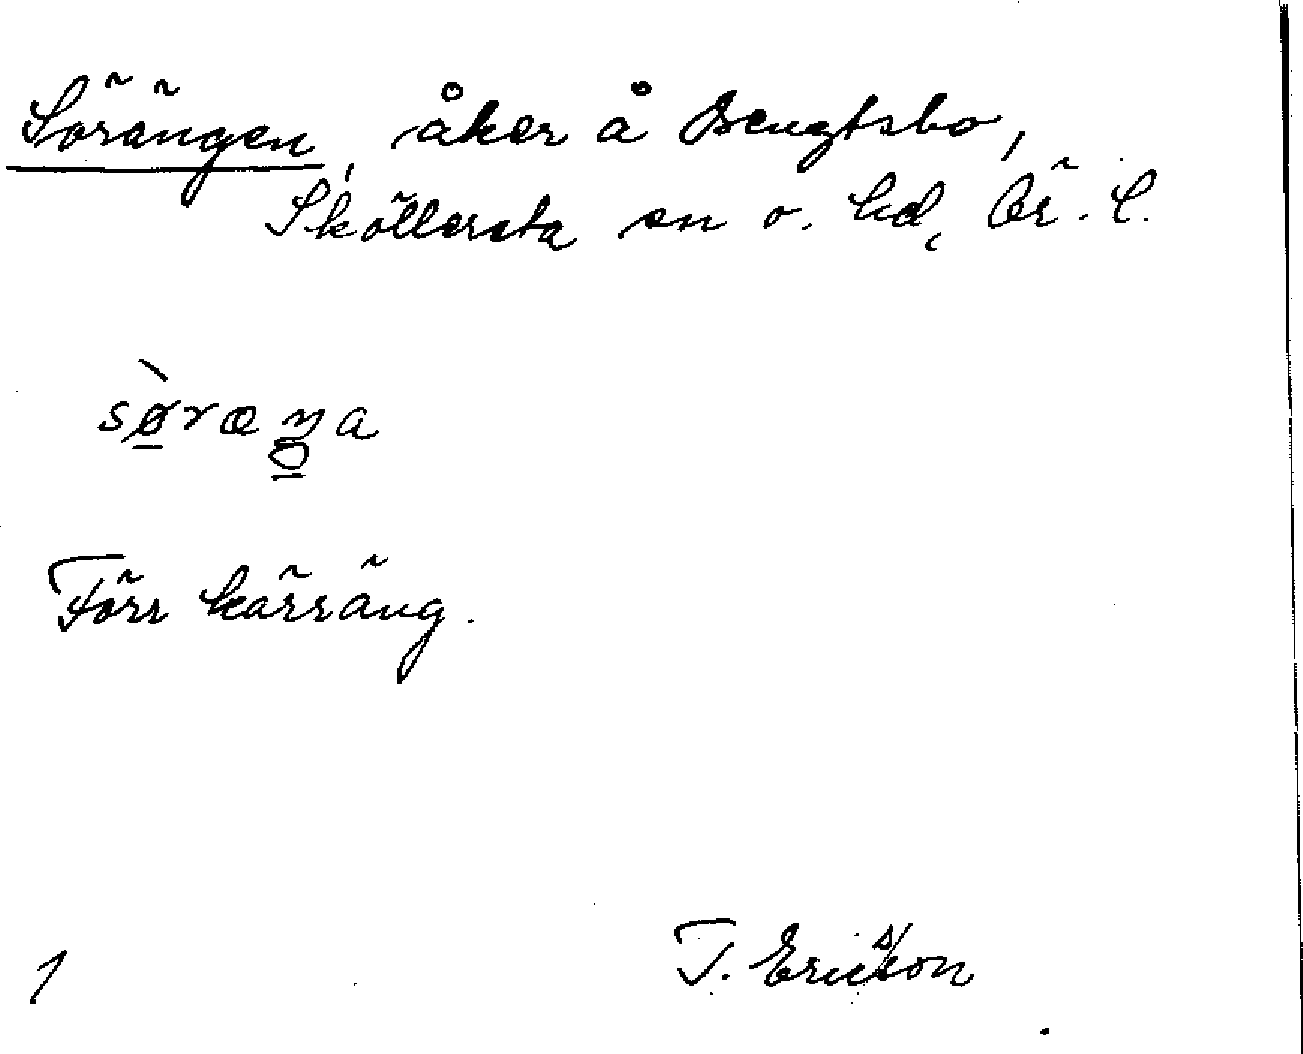 Sörängen, åker å Bengtsbo,
Sköllersta sn o. hd, Ör. l.
sø̀ræŋa
Förr kärräng.
1 T. Ericsson